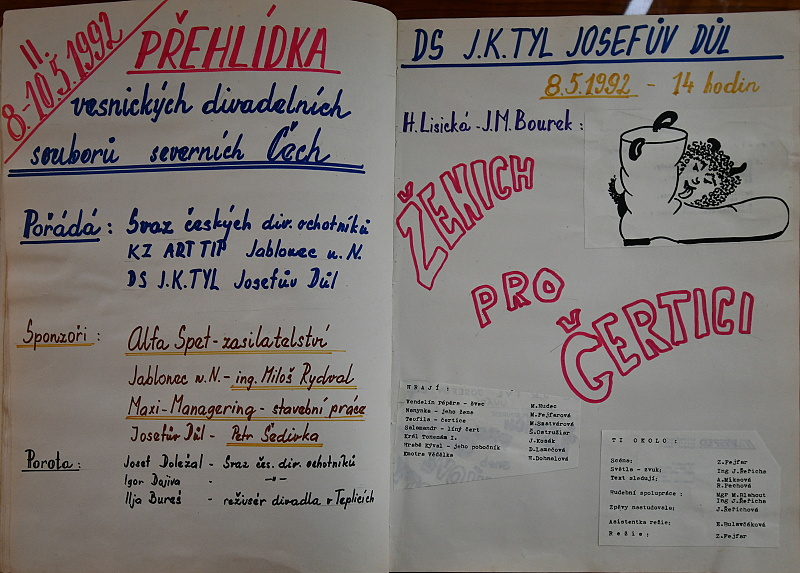 II.
8.-10.5.1992
PŘEHLÍDKA
vesnických divadelních
souborů severních Čech
Pořádá: Svaz českých div. ochotníků
KZ ARTTIP Jablonec n.N.
DS J.K.TYL Josefův Důl
Sponzoři: Alfa Spet-zasilatelství
Jablonec n.N.- ing. Miloš Rydval
Maxi-Managering - stavební práce
Josefův Důl - Petr Šedivka
Porota: Josef Doležal - Svaz čes. div. ochotníků
Igor Dajiva - -"-
Ilja Bureš - režisér divadla v Teplicích
DS J.K.TYL JOSEFŮV DŮL
8.5.1992 - 14 hodin
H. Lisická - J.M.Bourek:
ŽENICH
PRO
ČERTICI
HRAJÍ:
Vendelín Pěpěra - švec M.Hudec
Nanynka - jeho žena M.Fejfarová
Teofila - čertice
Salamandr - líný čert S.Ostružier
Král Tomomám I. J.Kosák
Hrabě Kýval - jeho pobočník
Kmotra Věčálka
TI OKOLO:
Scéna: Z.Fejfar
Světla - zvuk: Ing J.Řeřicha
Text sledují: A.Miksová
R.Pechová
Hudební spolupráce: Mgr M.Hlahout
Ing J.Řeřicha
Zpěvy nastudovala: J.Řeřichová
Asistentka režie:
Režie: Z.Fejfar